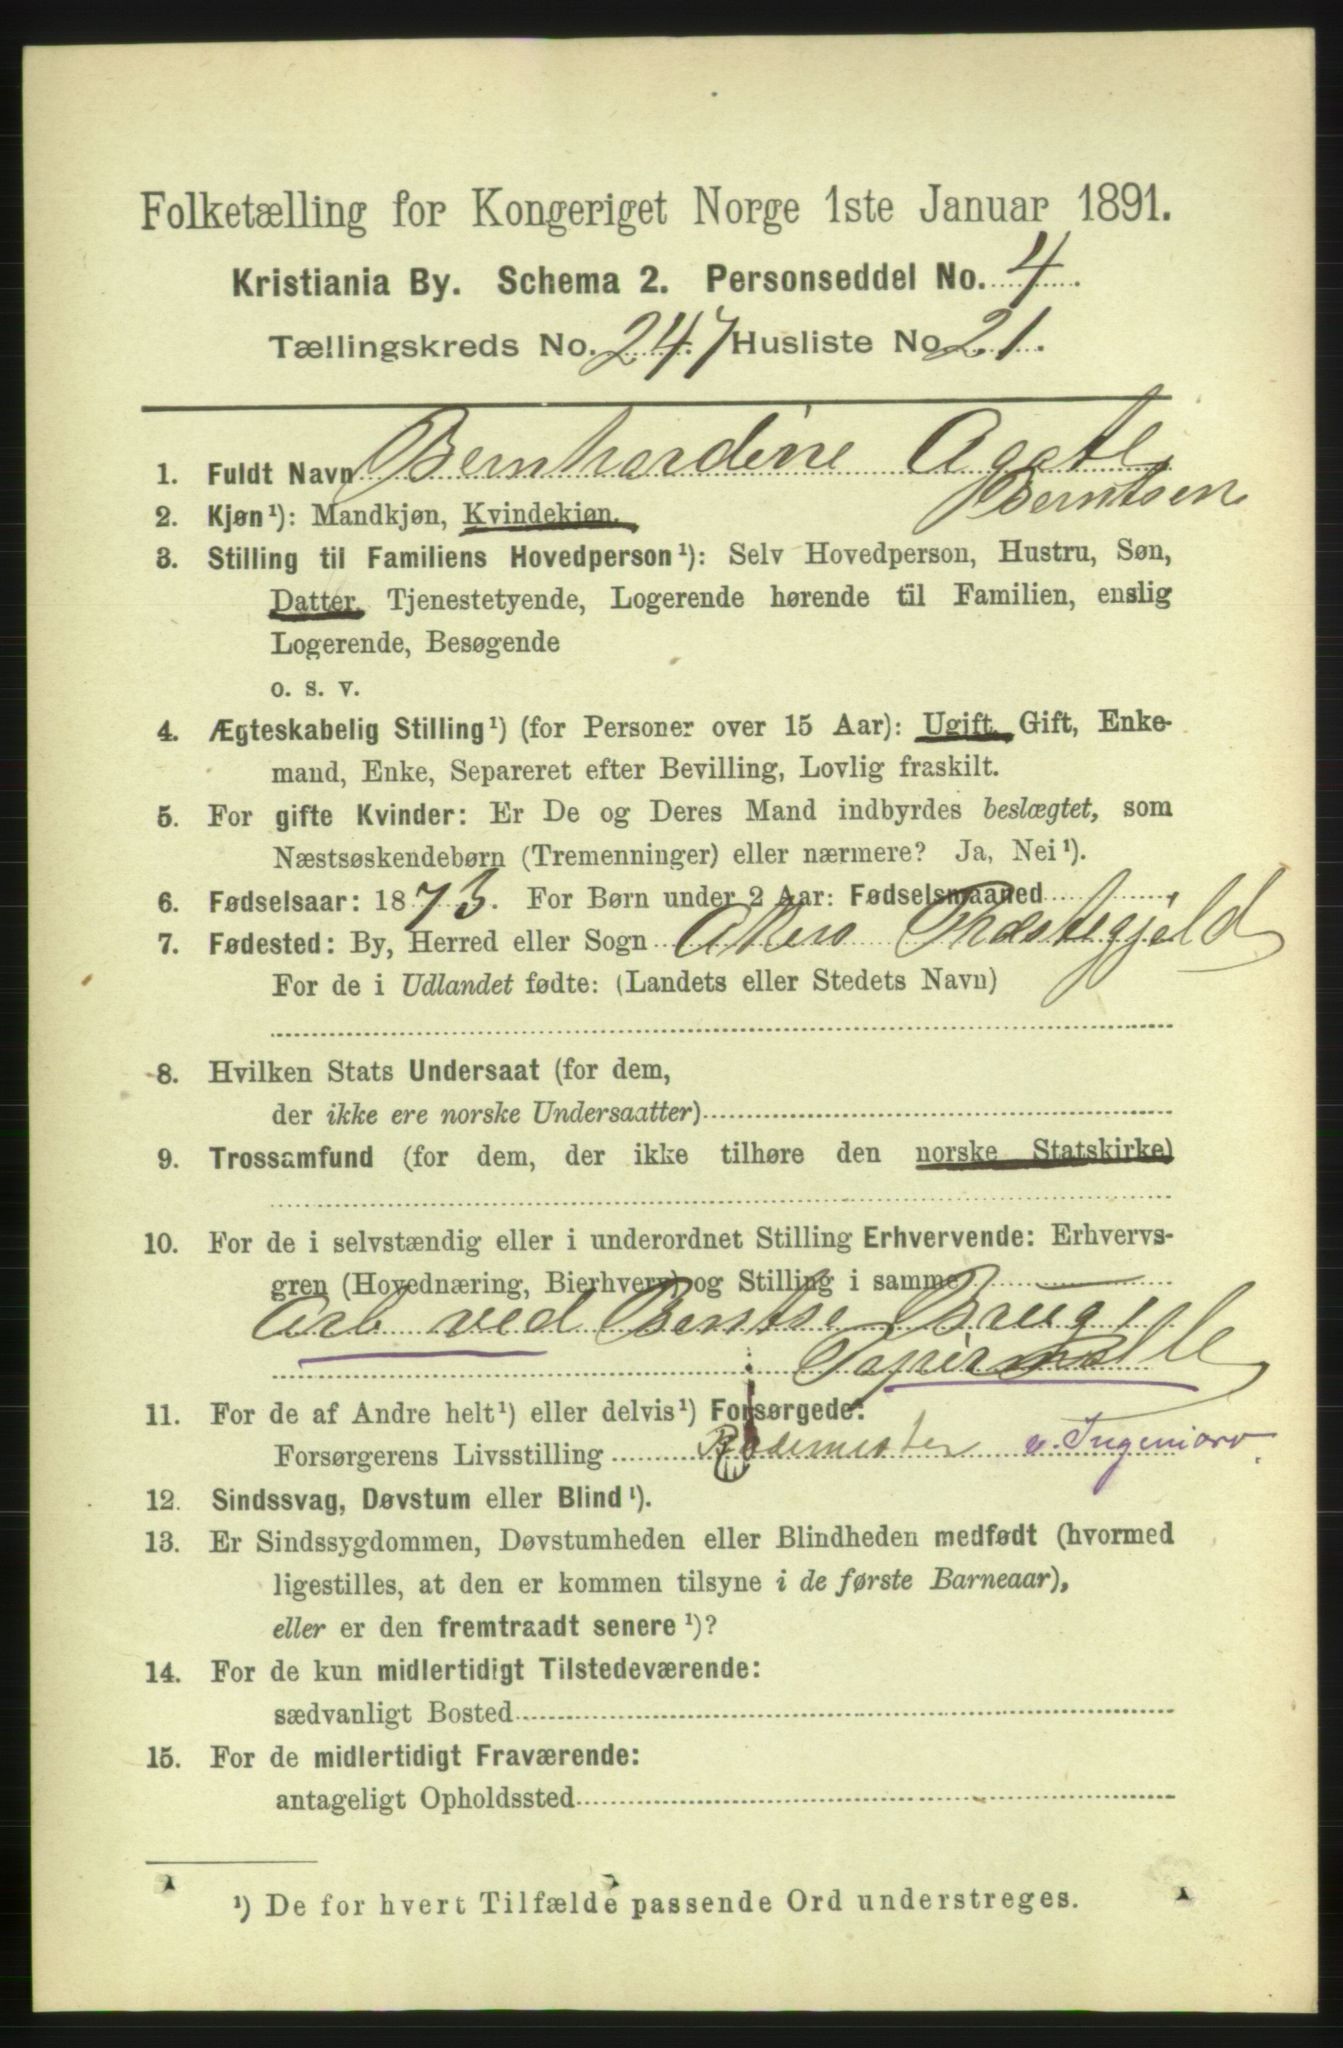 Folketælling for Kongeriget Norge 1ste Januar 1891.
Kristiania By. Schema 2. Personseddel No. 4.
Tællingskreds No. 247 Husliste No. 21.
1. Fuldt Navn Bernhardine Agate
Berntsen
2. Kjøn¹): Mandkjøn, Kvindekjøn.
3. Stilling til Familiens Hovedperson¹): Selv Hovedperson, Hustru, Søn,
Datter, Tjenestetyende, Logerende hørende til Familien, enslig
Logerende, Besøgende
o. s. v.
4. Ægteskabelig Stilling¹) (for Personer over 15 Aar): Ugift, Gift, Enke-
mand, Enke, Separeret efter Bevilling, Lovlig fraskilt.
5. For gifte Kvinder: Er De og Deres Mand indbyrdes beslægtet, som
Næstsøskendebørn (Tremenninger) eller nærmere? Ja, Nei¹).
6. Fødselsaar: 1873. For Børn under 2 Aar: Fødselsmaaned
7. Fødested: By, Herred eller Sogn Akers Præstegjeld
For de i Udlandet fødte: (Landets eller Stedets Navn)
8. Hvilken Stats Undersaat (for dem,
der ikke ere norske Undersaatter)
9. Trossamfund (for dem, der ikke tilhøre den norske Statskirke)
10. For de i selvstændig eller i underordnet Stilling Erhvervende: Erhvervs-
gren (Hovednæring, Bierhverv) og Stilling i samme
Arb ved Bentse Brug
i Papirmølle
11. For de af Andre helt¹) eller delvis¹) Forsørgede:
Forsørgerens Livsstilling Rodemester v. Ingeniørv.
12. Sindssvag, Døvstum eller Blind¹).
13. Er Sindssygdommen, Døvstumheden eller Blindheden medfødt (hvormed
ligestilles, at den er kommen tilsyne i de første Barneaar),
eller er den fremtraadt senere¹)?
14. For de kun midlertidigt Tilstedeværende:
sædvanligt Bosted
15. For de midlertidigt Fraværende:
antageligt Opholdssted
¹) De for hvert Tilfælde passende Ord understreges.